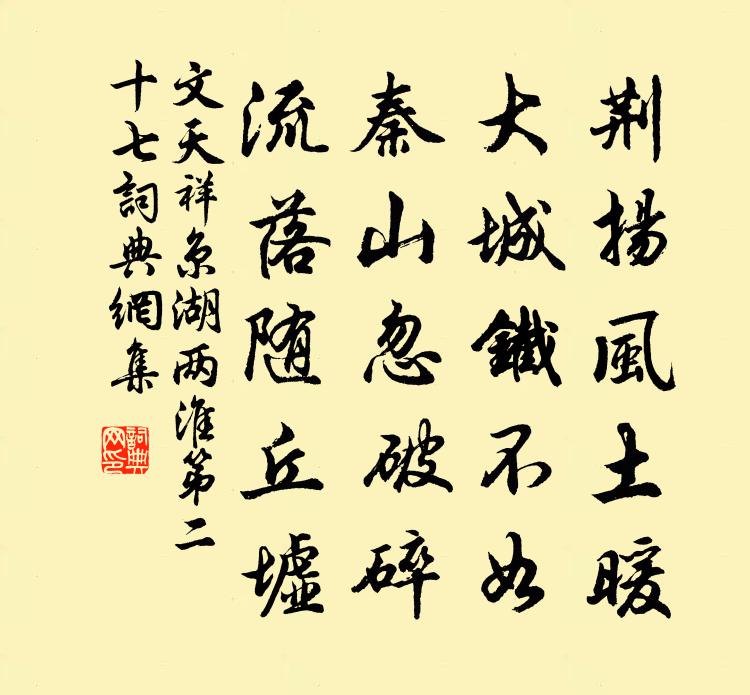 荆揚風土暖
大城鐵不如
秦山忽破碎
流落随丘墟
文天祥京湖两淮第二
十七詞典網集
詞典
网印